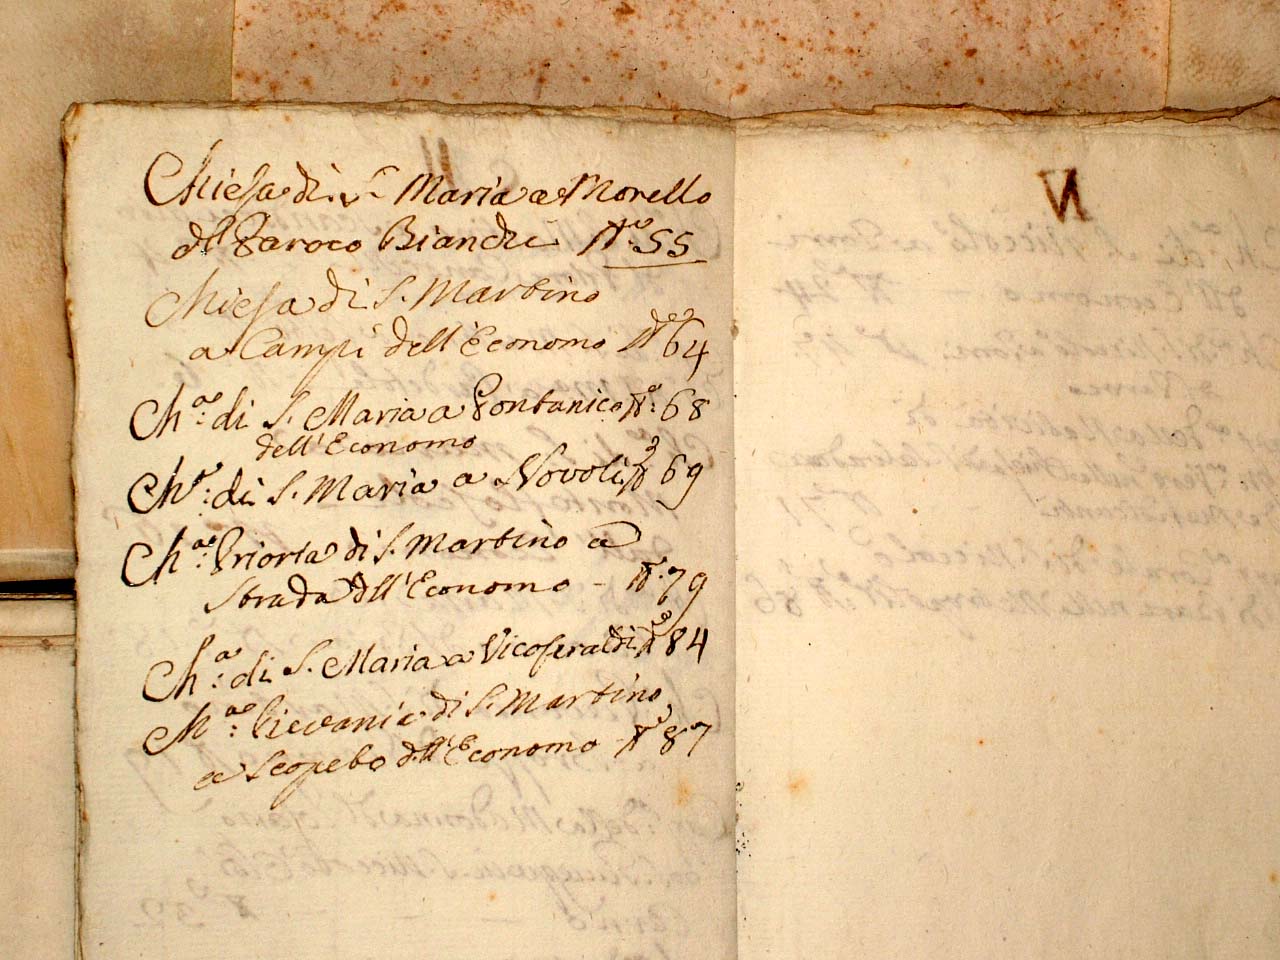 Chiesa di S. Maria a Morello
dl Paroco Bianchi N.º 55
Chiesa di S. Martino
a Campi dell'Economo Nº 64
Ch.ª di S. Maria a Fontanico Nº: 68
dell'Economo
Chª: di S. Maria a Novoli Nº 69
Ch.ª Prioria di S. Martino a
Strada dll'Economo - Nº: 79
Ch.ª di S. Maria a Vicoferaldi Nº 84
Ch.ª Pievania di S. Martino
a Scopeto dll'Economo - Nº 87
N